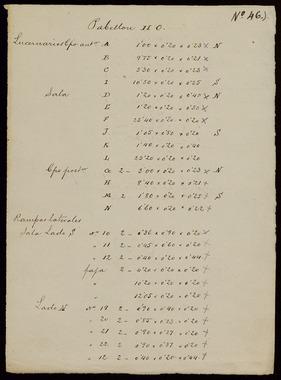 Nº 46.)
Pabellon II O.
A 1'00 × 0'20 × 0'23 × N
B 9'75 × 0'20 × 0'21 ×
C 5'30 × 0'20 × 0'23 ×
I 10'50 × 0'20 × 0'25 S
Sala D 1'20 × 0'20 × 0'40 × N
E 1'20 × 0'20 × 0'50 ×
F 25'40 × 0'20 × 0'20 ×
J 1'05 × 0'50 × 0'20 S
K 1'40 × 0'20 × 0'40
L 25'20 × 0'20 × 0'20
G 2 - 3'00 × 0'20 × 0'23 × N
H 8'40 × 0'20 × 0'21 +
M 2 1'80 × 0'20 × 0'25 + S
N 6'60 × 0'20 × 0'22 +
Rampas laterales
Sala Lado S nº 10 2 - 0'30 × 0'90 × 0'20 ×
" 11 2 - 0'45 × 0'60 × 0'20 +
" 12 2 - 0'40 × 0'20 × 0'44 +
faja 2 - 4'20 × 0'20 × 0'20 +
" 10'20 × 0'20 × 0'20 +
" 12'05 × 0'20 × 0'20 +
Lado N nº 19 2 - 0'90 × 0'40 × 0'20 +
" 20 2 - 0'85 × 0'23 × 0'20 +
" 21 2 - 0'90 × 0'27 × 0'20 +
" 22 2 - 0'90 × 0'37 × 0'20 +
" 12 2 - 0'40 × 0'20 × 0'44 +